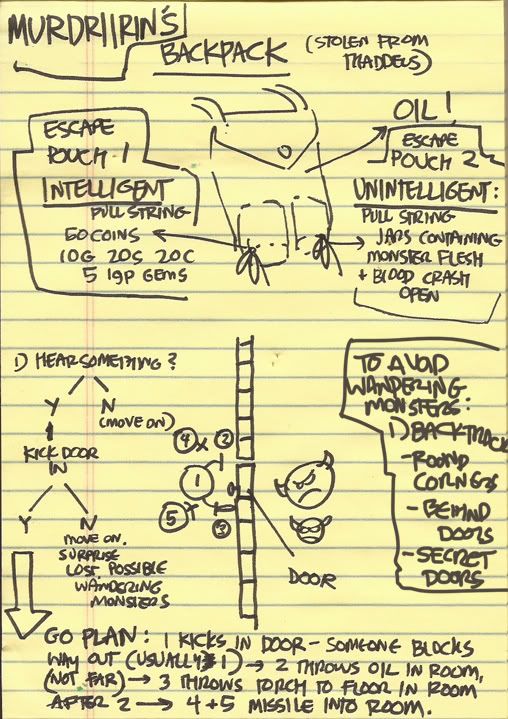 MURDRIIRIN'S
BACKPACK
(STOLEN FROM
THADDEUS)
ESCAPE
POUCH 1
INTELLIGENT
PULL STRING
50 COINS
10G 20S 20C
5 1gp GEMS
OIL!
ESCAPE
POUCH 2
UNINTELLIGENT:
PULL STRING
JARS CONTAINING
MONSTER FLESH
+ BLOOD CRASH
OPEN
1) HEAR SOMETHING?
Y N
(MOVE ON)
KICK DOOR
IN
Y N
MOVE ON.
SURPRISE
LOST. POSSIBLE
WANDERING
MONSTERS
4 2
1
5 3
DOOR
TO AVOID
WANDERING
MONSTERS:
1) BACKTRACK
- ROUND
CORNERS
- BEHIND
DOORS
- SECRET
DOORS
GO PLAN: 1 KICKS IN DOOR - SOMEONE BLOCKS
WAY OUT (USUALLY #1) → 2 THROWS OIL IN ROOM,
(NOT FAR) → 3 THROWS TORCH TO FLOOR IN ROOM
AFTER 2 → 4 + 5 MISSILE INTO ROOM.